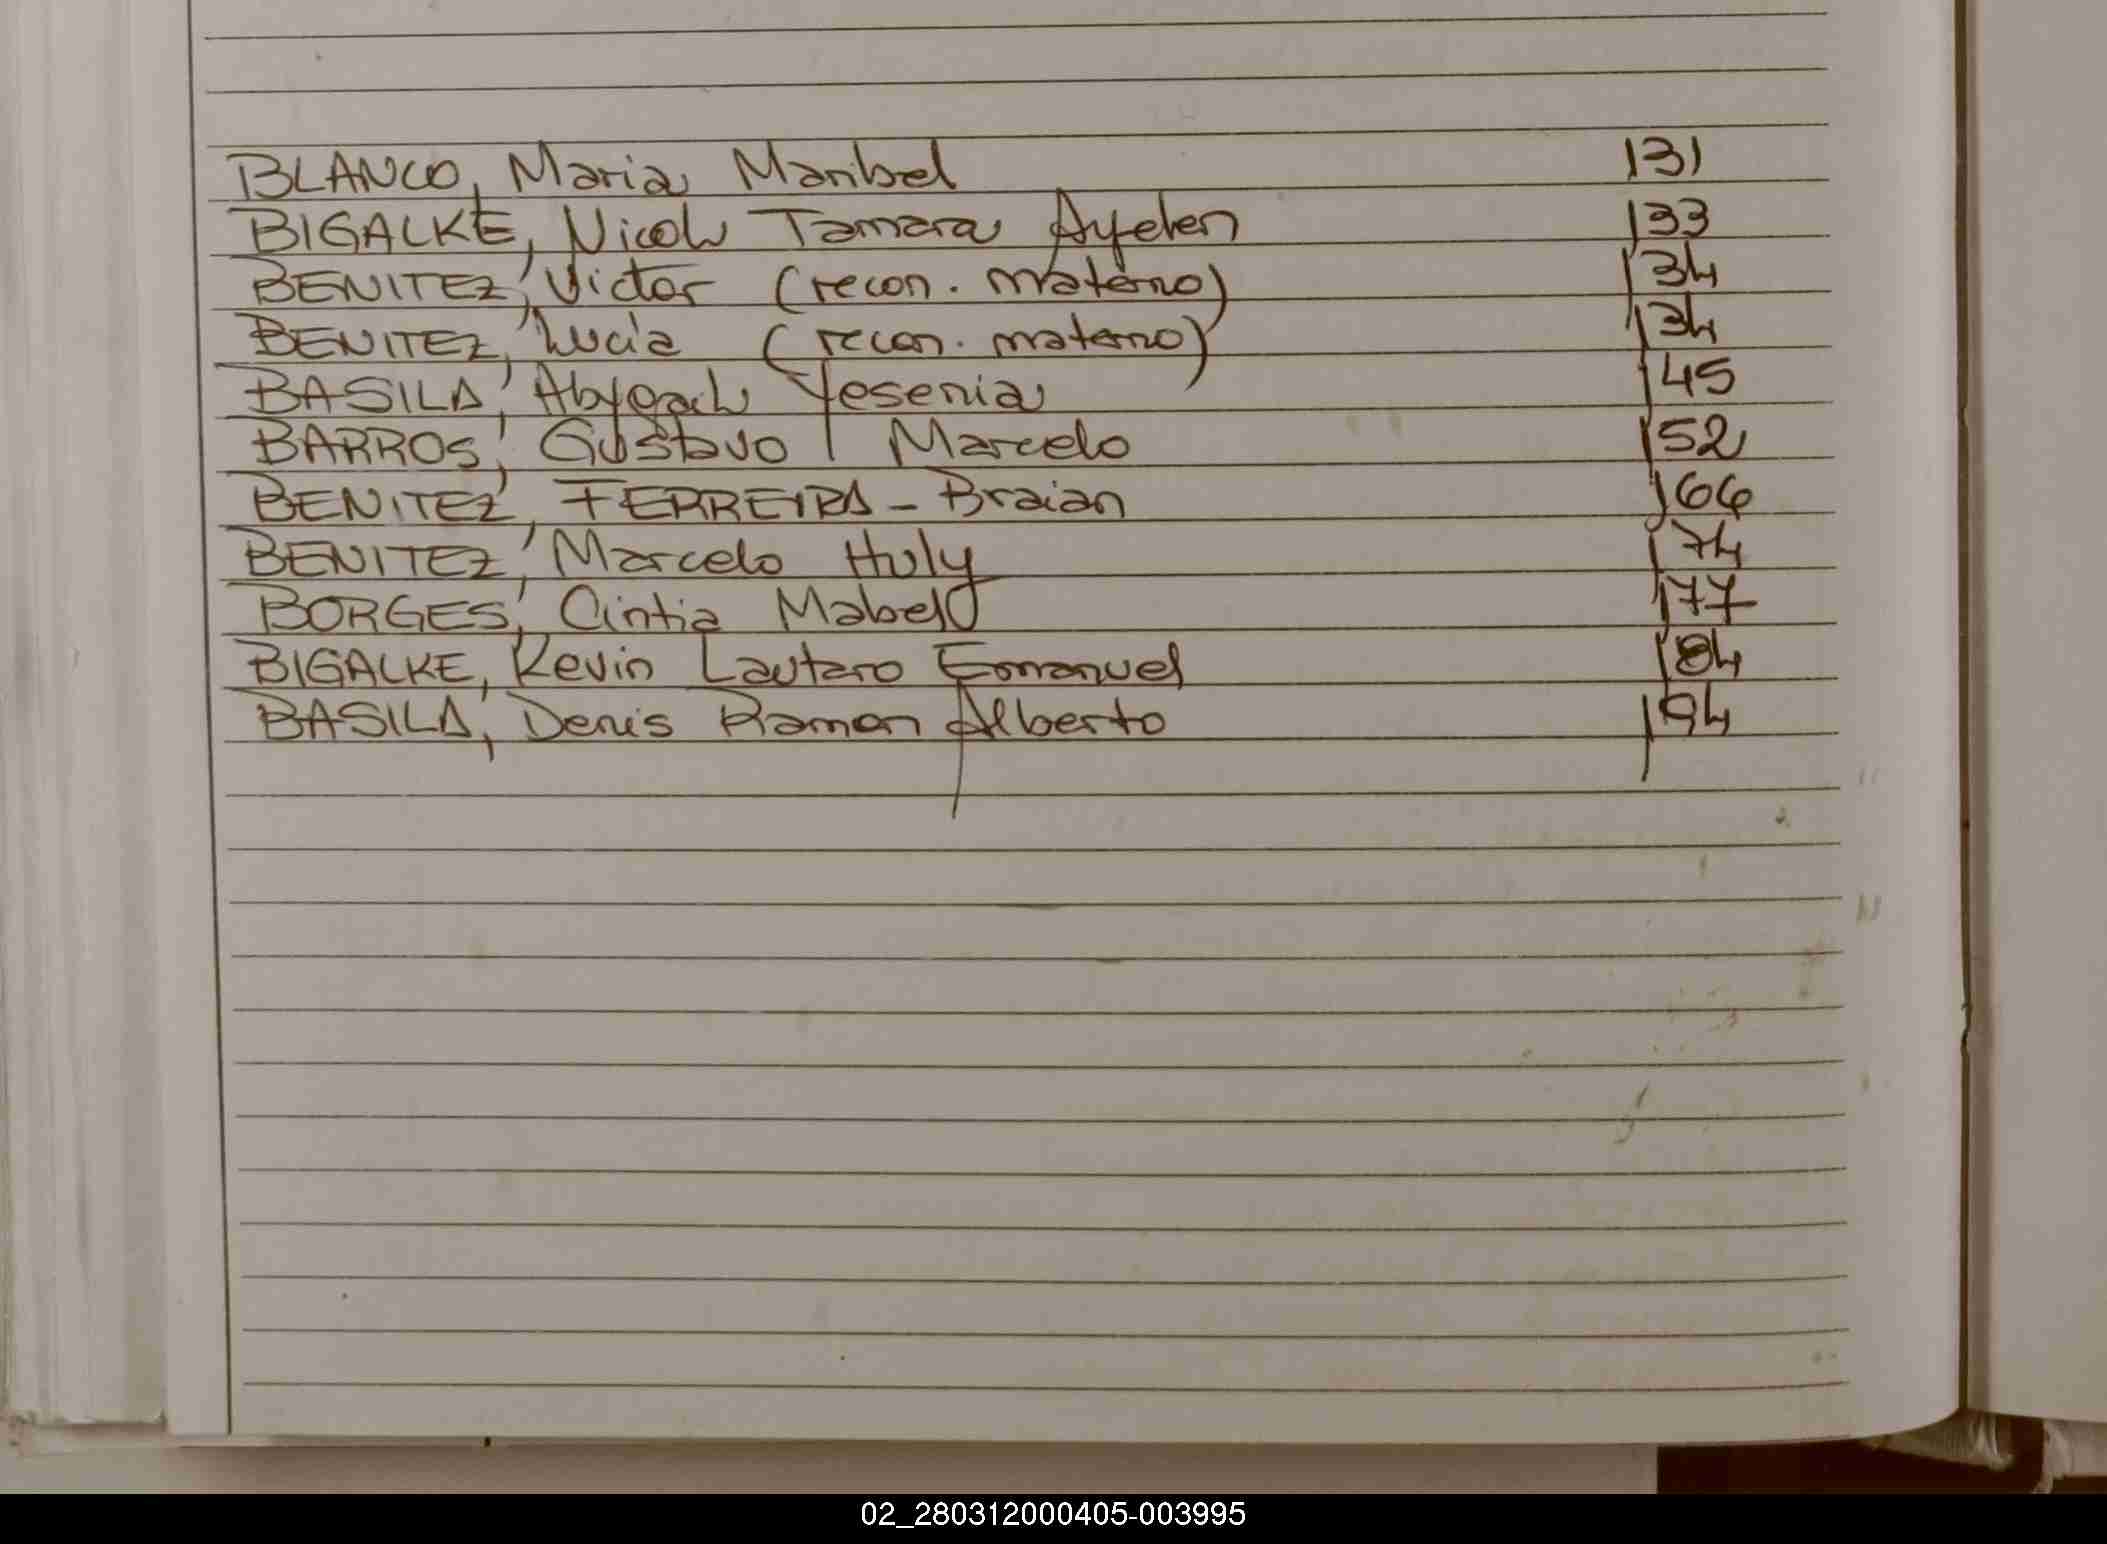 BLANCO, Maria Maribel 131
BIGALKE, Nicole Tamara Ayelen 133
BENITEZ, Victor (recon. materno) 134
BENITEZ, Lucia (recon. materno) 134
BASILA, Abygach Yesenia 145
BARROS, Gustavo Marcelo 152
BENITEZ, FERREIRA - Braian 166
BENITEZ, Marcelo Huly 174
BORGES, Cintia Mabel 177
BIGALKE, Kevin Lautaro Emanuel 184
BASILA, Denis Ramon Alberto 194
02_280312000405-003995